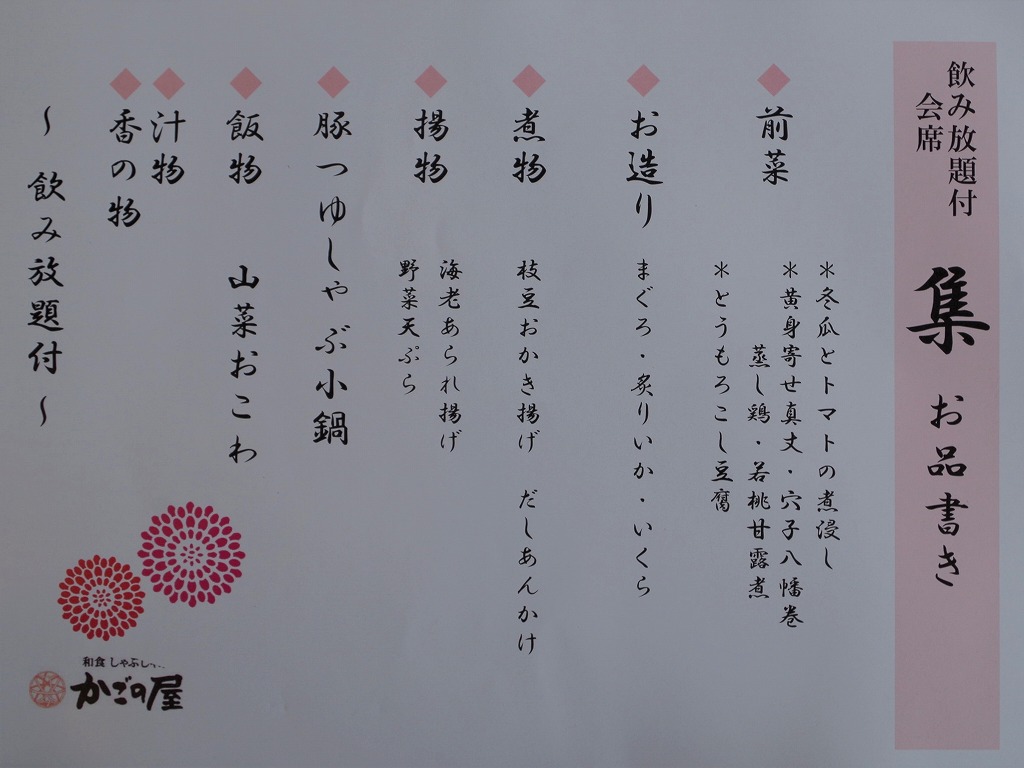 飲み放題付
会席
集 お品書き
前菜
＊冬瓜とトマトの煮浸し
＊黄身寄せ真丈・穴子八幡巻
蒸し鶏・若桃甘露煮
＊とうもろこし豆腐
お造り
まぐろ・炙りいか・いくら
煮物
枝豆おかき揚げ だしあんかけ
揚物
海老あられ揚げ
野菜天ぷら
豚つゆしゃぶ小鍋
飯物 山菜おこわ
汁物
香の物
～ 飲み放題付 ～
和食 しゃぶし
かごの屋